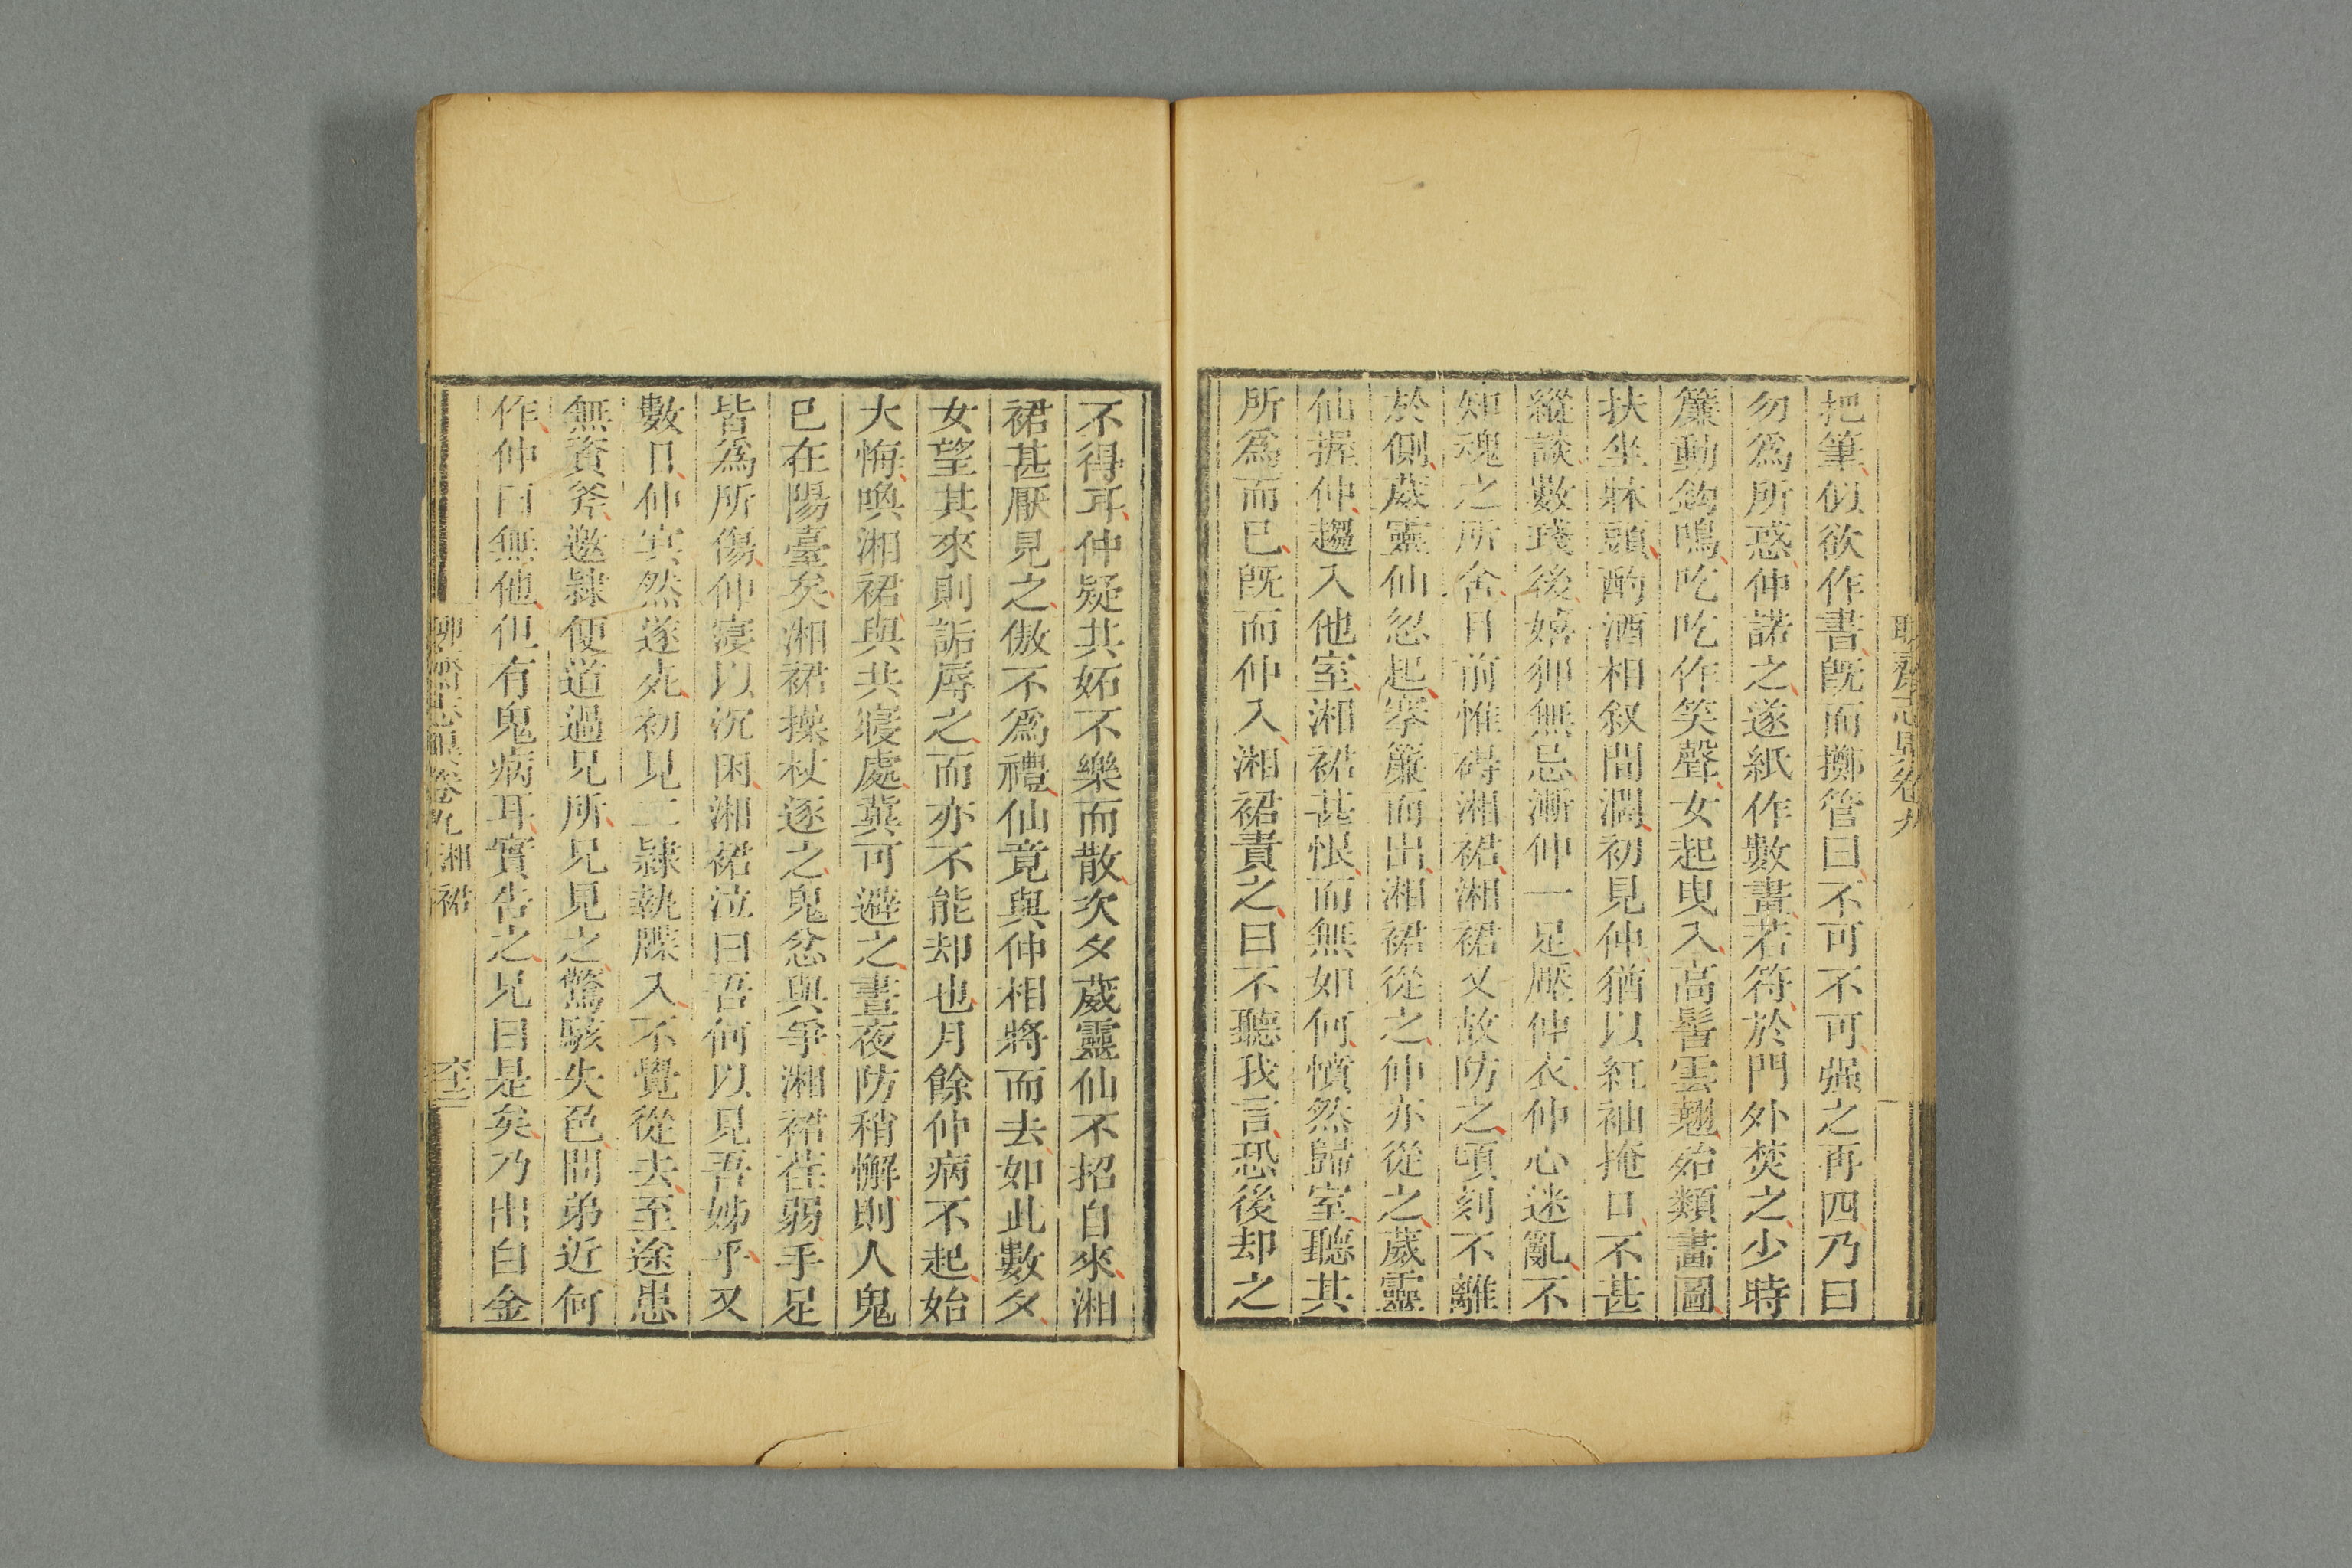 把筆似欲作書既而擲管曰不可不可强之再四乃曰
勿爲所惑仲諾之遂紙作數畫若符於門外焚之少時
簾動鈎鳴吃吃作笑聲女起曳入高髻雲翹殆類畵圖
扶坐牀頭酌酒相叙間濶初見仲猶以紅袖掩口不甚
縱談數琖後嬉狎無忌漸伸一足壓仲衣仲心迷亂不
知魂之所舍目前惟碍湘裙湘裙又故防之頃刻不離
於側葳靈仙忽起搴簾而出湘裙從之仲亦從之葳靈
仙握仲趨入他室湘裙甚恨而無如何憤然歸室聽其
所爲而已既而仲入湘裙責之曰不聽我言恐後却之
不得耳仲疑其妬不樂而散次夕葳靈仙不招自來湘
裙甚厭見之傲不爲禮仙竟與仲相將而去如此數夕
女望其來則詬辱之而亦不能却也月餘仲病不起始
大悔喚湘裙與共寢處冀可避之晝夜防稍懈則人鬼
已在陽臺矣湘裙操杖逐之鬼忿與爭湘裙荏弱手足
皆爲所傷仲寖以沉困湘裙泣曰吾何以見吾姊乎又
數日仲寘然遂死初見二隸執牒入不覺從去至途患
無資斧邀隸便道過兄所兄見之驚駭失色問弟近何
作仲曰無他但有鬼病耳實告之兄曰是矣乃出白金
聊齋志異卷九 湘裙
聊齋志異卷九